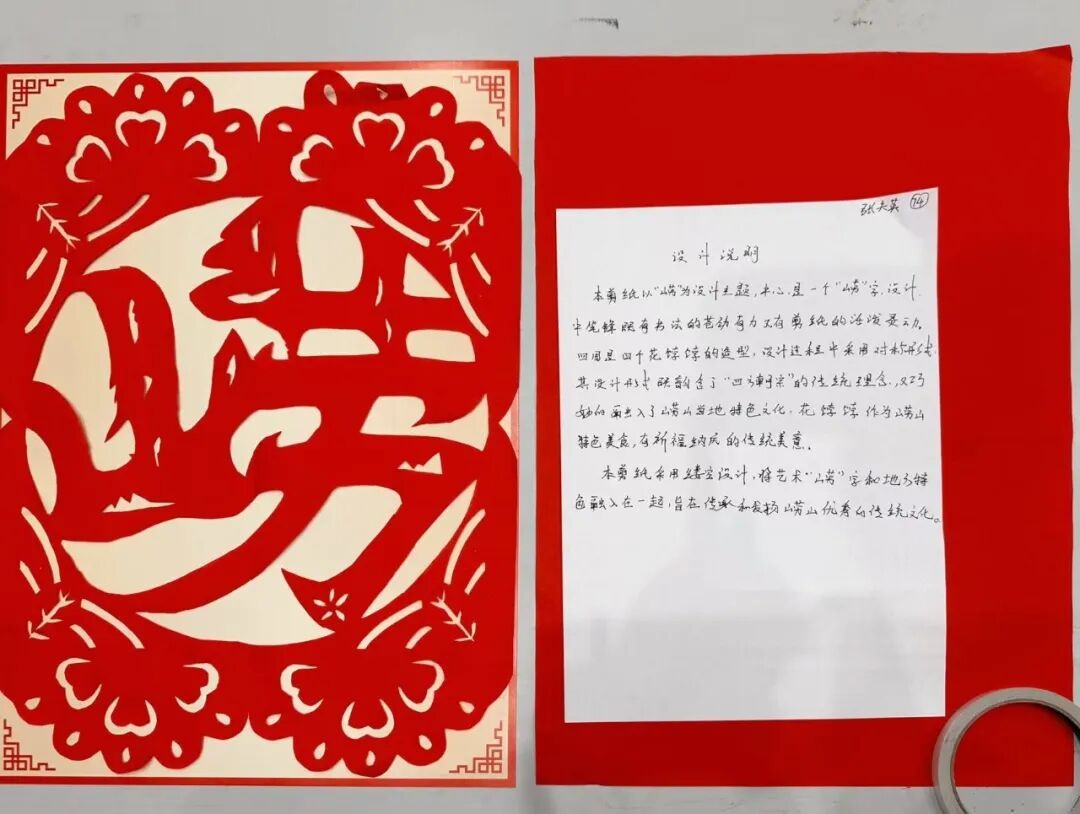 崂
张夫英 74
设计说明
本剪纸以“崂”为设计主题，中心是一个“崂”字，设计
中笔锋既有书法的苍劲有力又有剪纸的活泼灵动。
四周是四个花饽饽的造型，设计过程中采用对称形式，
其设计形式既韵含了“四方朝宗”的传统理念，又巧
妙的融入了崂山当地特色文化。花饽饽作为崂山
特色美食，有祈福纳风的传统美意。
本剪纸采用镂空设计，将艺术“崂”字和地方特
色融入在一起，旨在传承和发扬崂山优秀的传统文化。